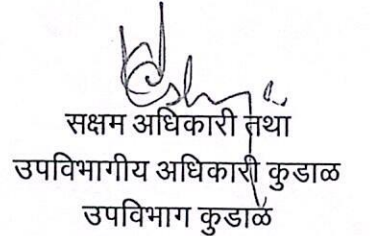 सक्षम अधिकारी तथा
उपविभागीय अधिकारी कुडाळ
उपविभाग कुडाळ